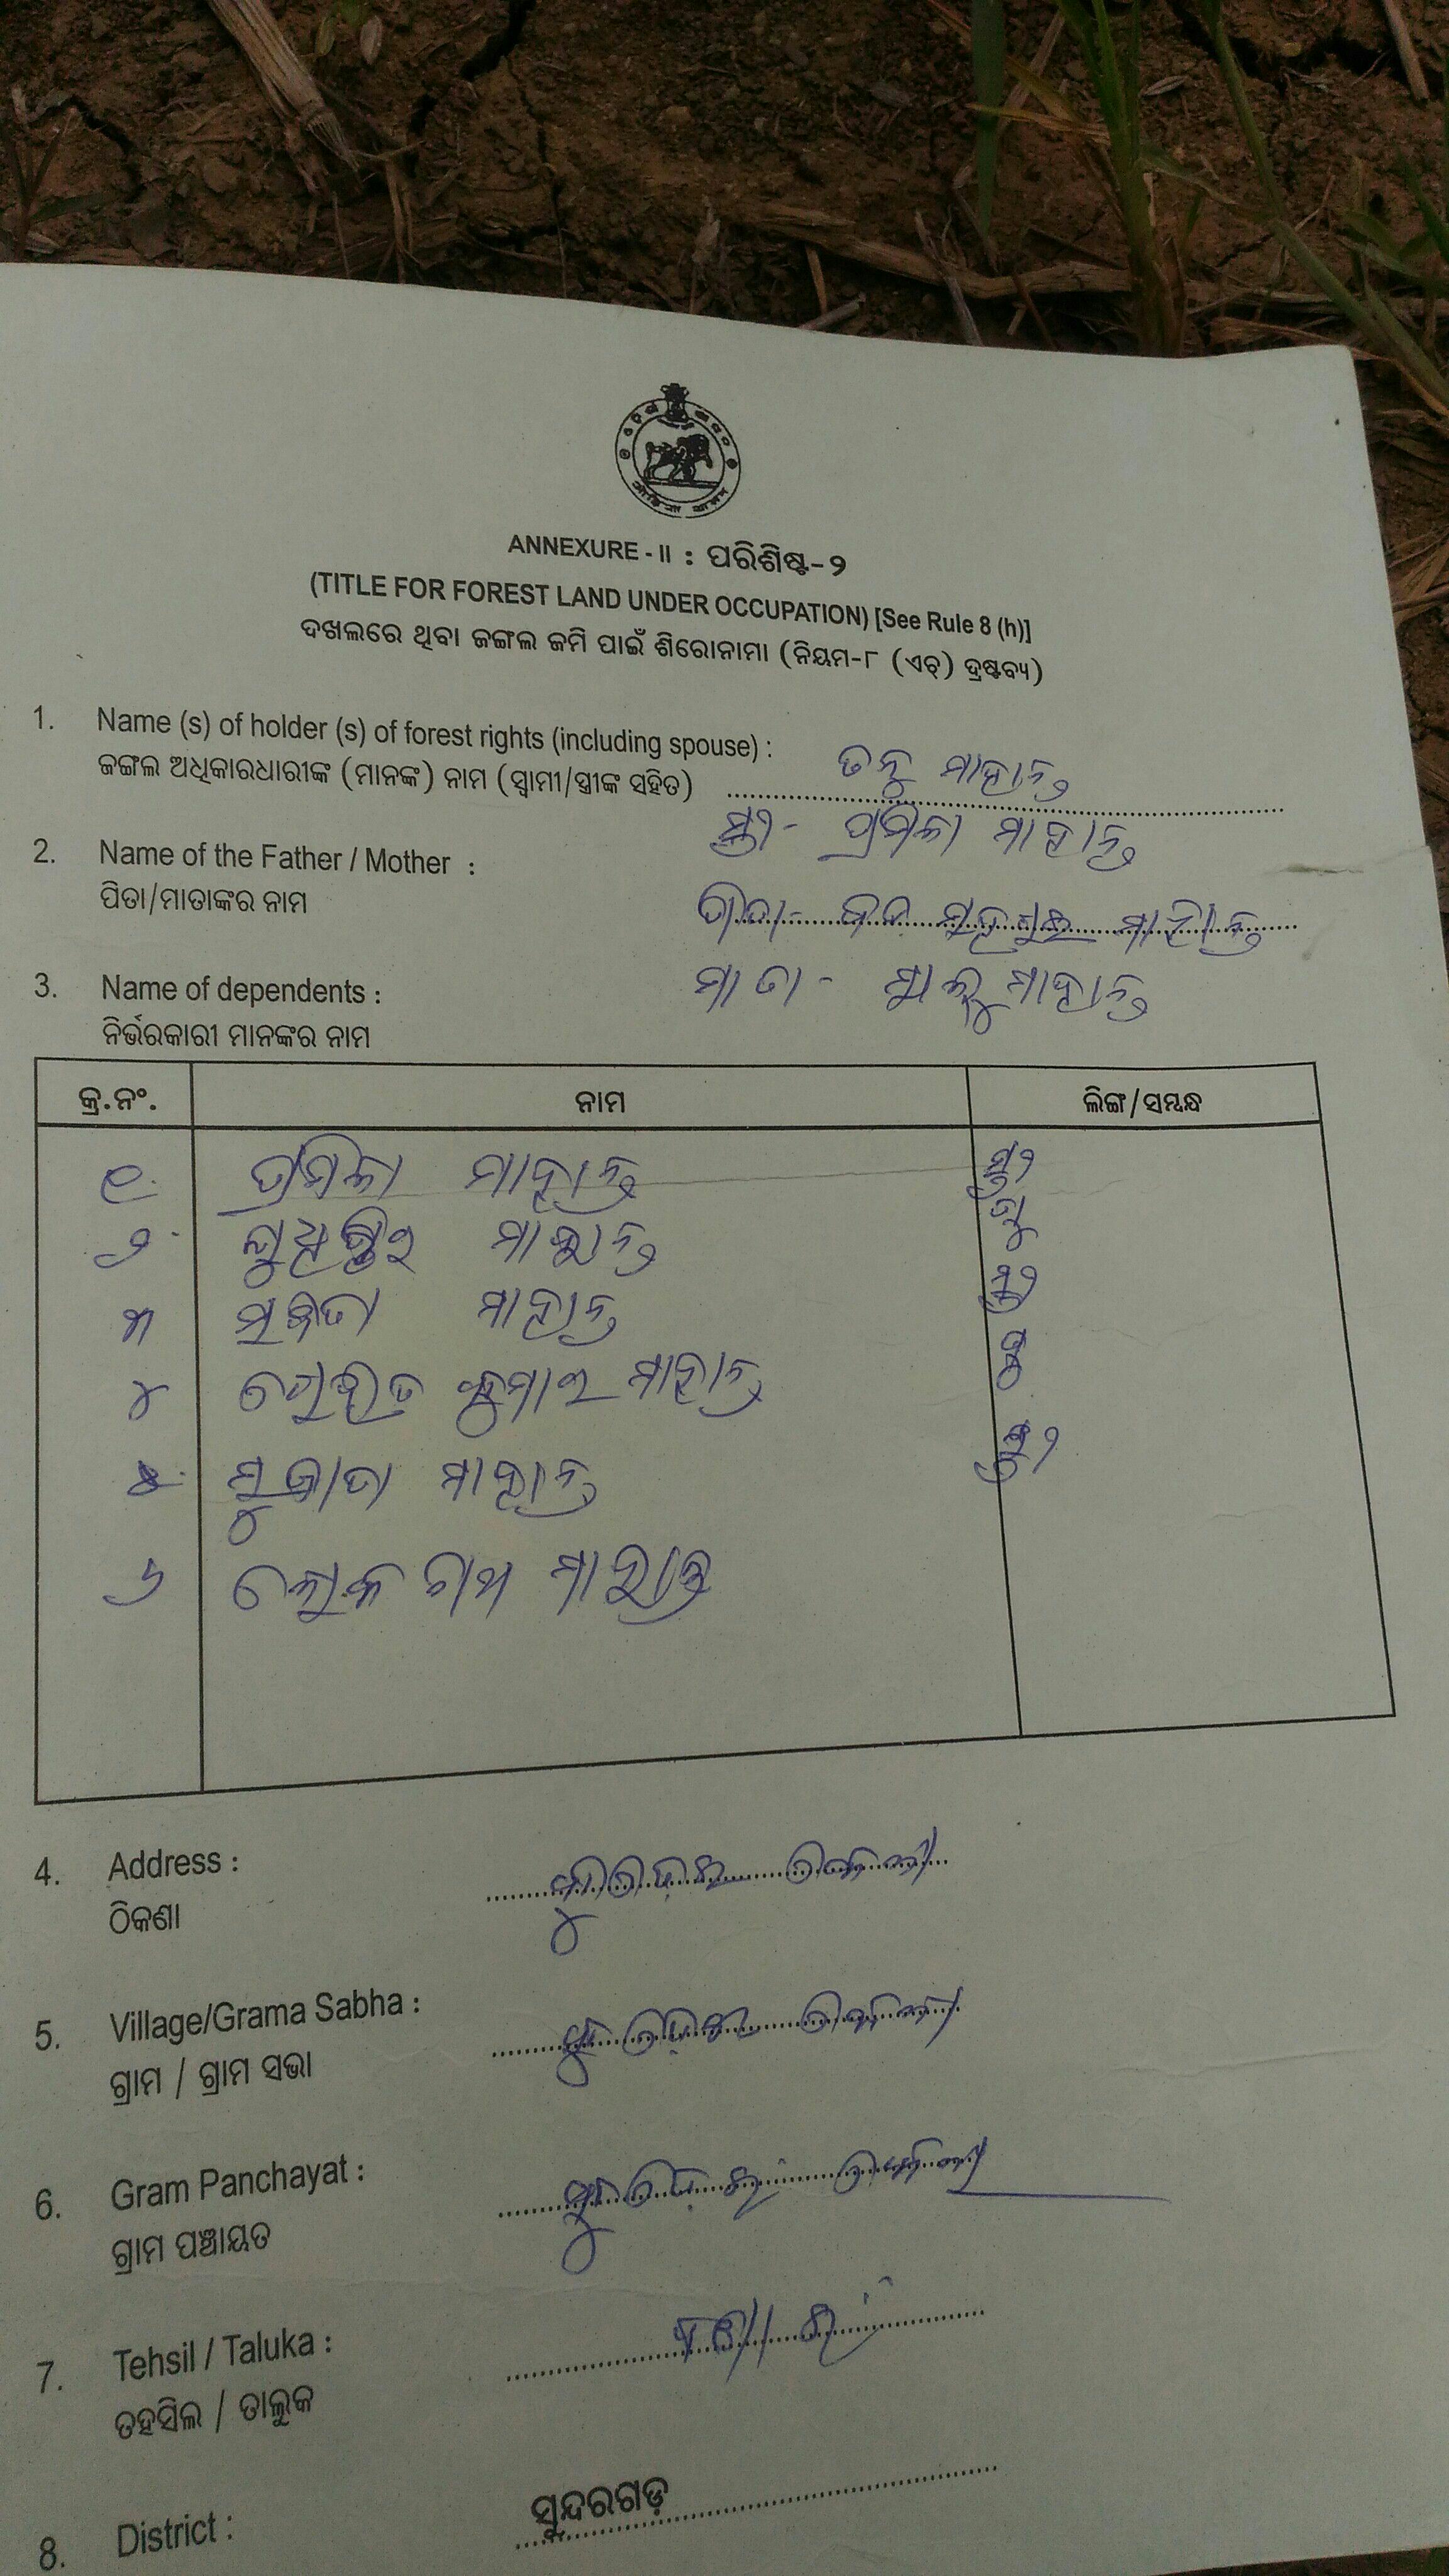 ANNEXURE - II : ପରିଶିଷ୍ଟ-୨
(TITLE FOR FOREST LAND UNDER OCCUPATION) [See Rule 8 (h)]
ଦଖଲରେ ଥିବା ଜଙ୍ଗଲ ଜମି ପାଇଁ ଶିରୋନାମା (ନିୟମ-୮ (ଏଚ୍) ଦ୍ରଷ୍ଟବ୍ୟ)
1. Name (s) of holder (s) of forest rights (including spouse) :
ଜଙ୍ଗଲ ଅଧିକାରଧାରୀଙ୍କ (ମାନଙ୍କ) ନାମ (ସ୍ୱାମୀ/ସ୍ତ୍ରୀଙ୍କ ସହିତ) ତନୁ ମାହାନ୍ତ
ସ୍ତ୍ରୀ - ପ୍ରମିଳା ମାହାନ୍ତ
2. Name of the Father / Mother :
ପିତା/ମାତାଙ୍କର ନାମ ପିତା - ମାହାନ୍ତ
3. Name of dependents : ମାତା - ମାହାନ୍ତ
ନିର୍ଭରକାରୀ ମାନଙ୍କର ନାମ
କ୍ର.ନଂ. ନାମ ଲିଙ୍ଗ/ସମ୍ବନ୍ଧ
୧. ପ୍ରମିଳା ମାହାନ୍ତ ସ୍ତ୍ରୀ
୨. ଯୁଧିଷ୍ଠିର ମାହାନ୍ତ ପୁ
୩ ସବିତା ମାହାନ୍ତ ସ୍ତ୍ରୀ
୪ କୁମାର ମାହାନ୍ତ ପୁ
୫. ସୁଜାତା ମାହାନ୍ତ ସ୍ତ୍ରୀ
୬ ଲୋକନାଥ ମାହାନ୍ତ
4. Address :
ଠିକଣା
5. Village/Grama Sabha :
ଗ୍ରାମ / ଗ୍ରାମ ସଭା
6. Gram Panchayat :
ଗ୍ରାମ ପଞ୍ଚାୟତ
7. Tehsil / Taluka : ବଣାଇଁ
ତହସିଲ / ତାଲୁକ
8. District : ସୁନ୍ଦରଗଡ଼